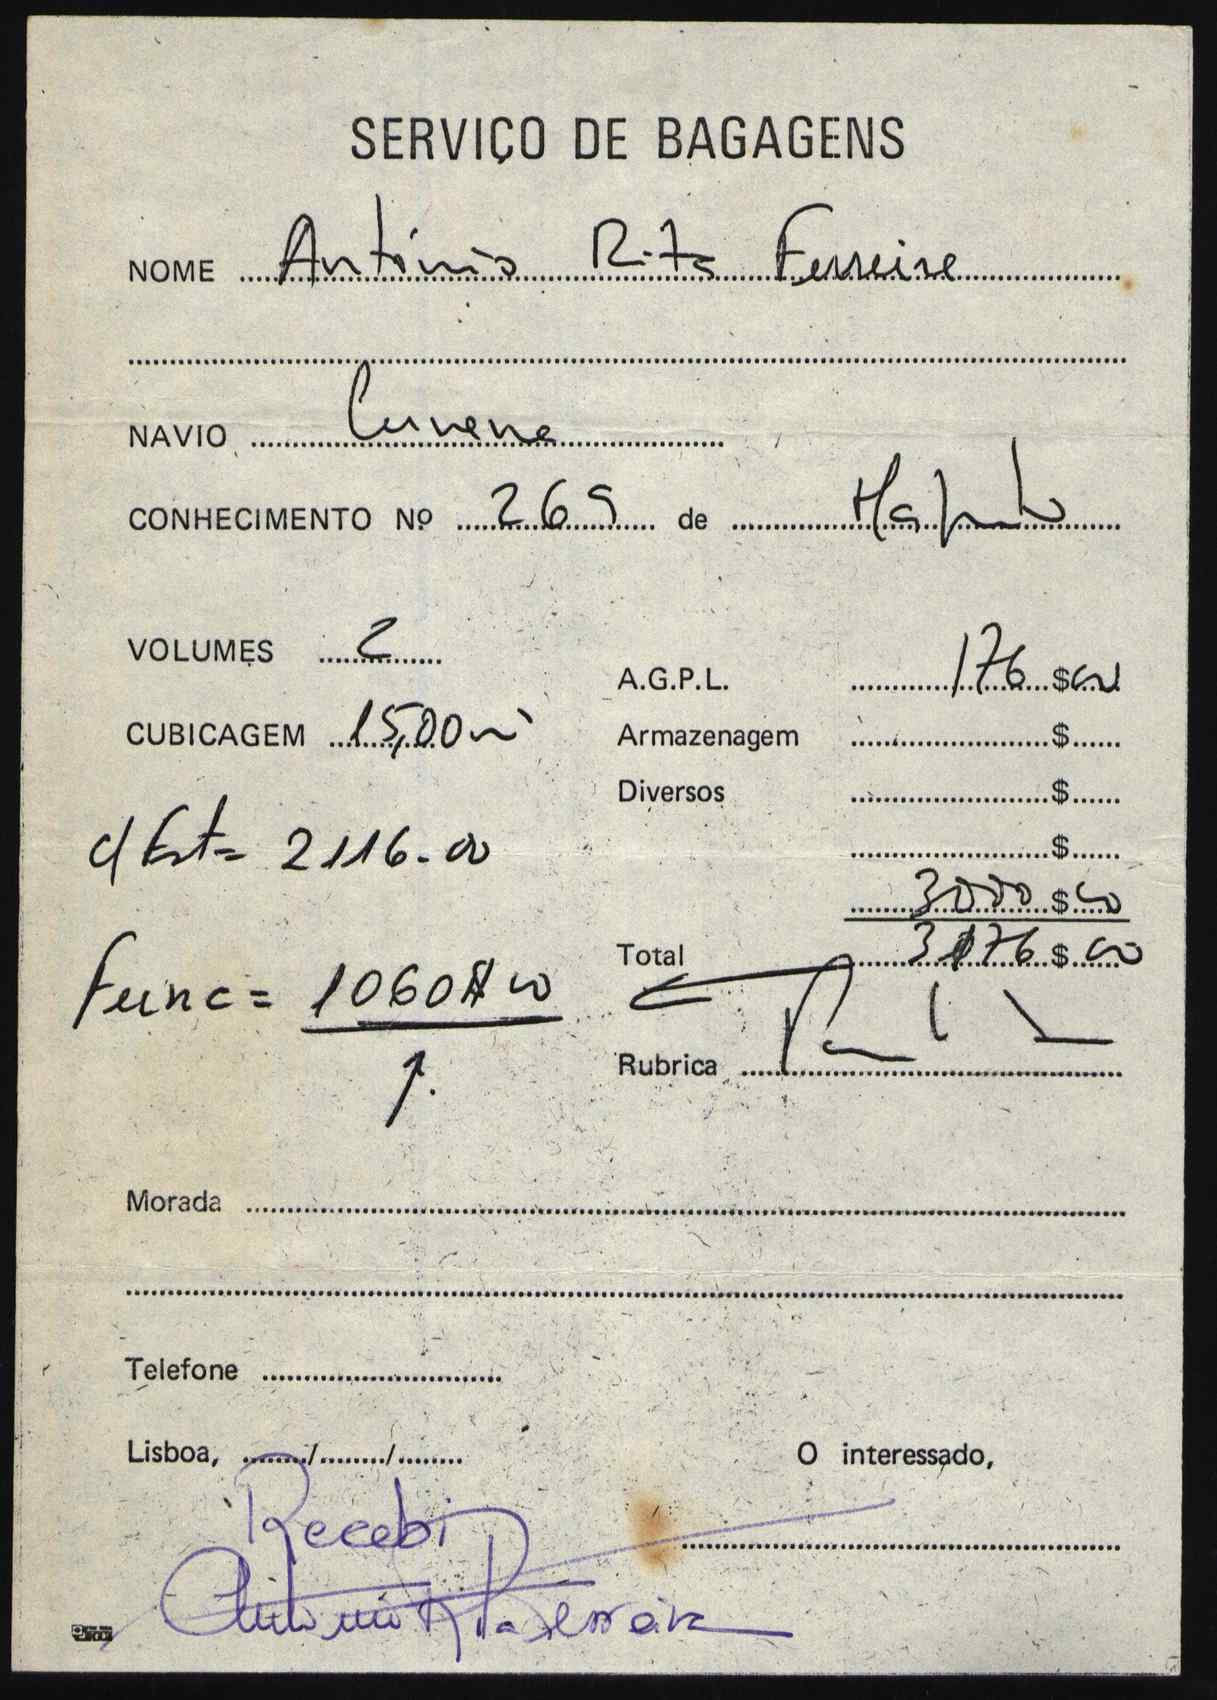 SERVIÇO DE BAGAGENS
NOME António Rita Ferreira
NAVIO Cunene
CONHECIMENTO Nº 269 de Maputo
VOLUMES 2
CUBICAGEM 15,00 m³
A.G.P.L. 176 $ 00
Armazenagem $
Diversos $
$
3000 $ 00
Total 3176 $ 00
c/ Est = 2116-00
Func = 1060$00
Rubrica
Morada
Telefone
Lisboa, / /
O interessado,
Recebi
António Rita Ferreira